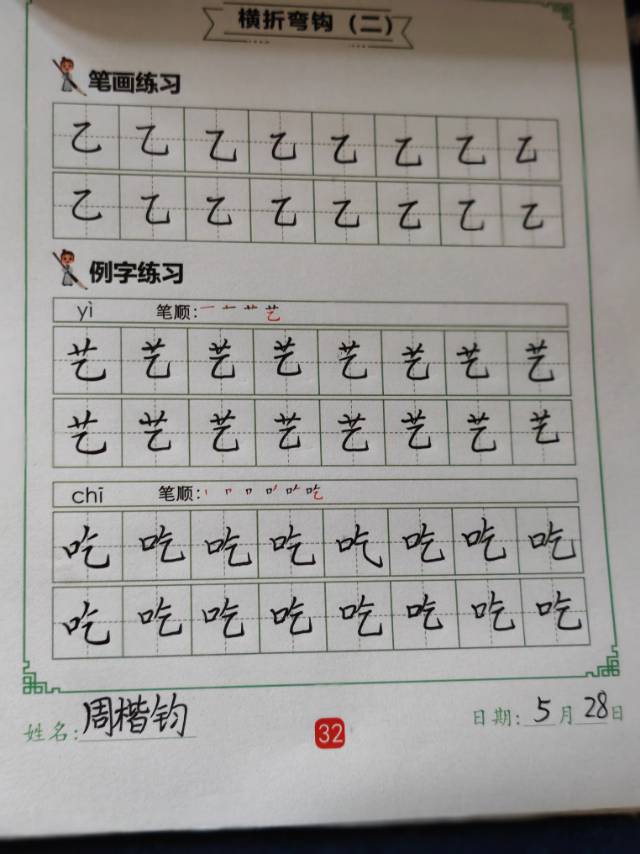 横折弯钩（二）
笔画练习
乙 乙 乙 乙 乙 乙 乙 乙
乙 乙 乙 乙 乙 乙 乙 乙
例字练习
yì 笔顺: 一 十 艹 艺
艺 艺 艺 艺 艺 艺 艺 艺
艺 艺 艺 艺 艺 艺 艺 艺
chī 笔顺: 丨 𠃍 口 吃
吃 吃 吃 吃 吃 吃 吃 吃
吃 吃 吃 吃 吃 吃 吃 吃
姓名: 周楷钧 32 日期: 5 月 28 日